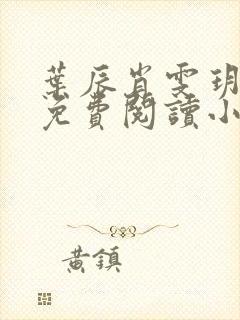 葉辰肖雯玥
免費閱讀小
黃鎮